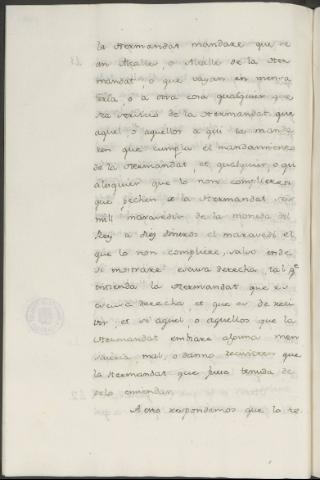 la Hermandat mandare que se
an Alcalle, o Alcalle de la Her
mandat, o que vayan en mensa
jeria, o a otra cosa qualquier que
sea servicio de la Hermandat, que
aquel, o aquellos a qui lo manda
ren que cumpla el mandamiento
de la Hermandat, et qualquier, o qui
alesquier que lo non complieren
que pechen a la Hermandat
mill maravedis de la moneda del
Rey a diez dineros el maravedi el
que lo non compliere, salvo ende
si mostrare escusa derecha, tal qe
entienda la Hermandat que es
escusa derecha, et que es de reci
bir, et si aquel, o aquellos que la
Hermandat embiare alguna men
sageria, mal, o danno recivieren que
la Hermandat que sea tenuda de
gelo emendar.
A esto respondemos que lo te